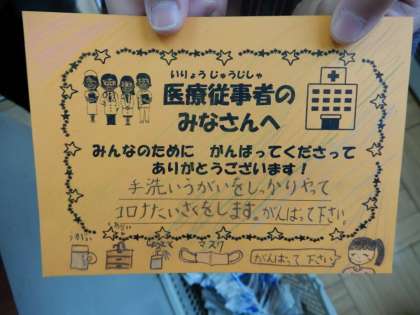 いりょうじゅうじしゃ
医療従事者の
みなさんへ
みんなのために がんばってくださって
ありがとうございます！
手洗いうがいをしっかりやって
コロナたいさくをします。がんばって下さい
マスク
がんばって下さい